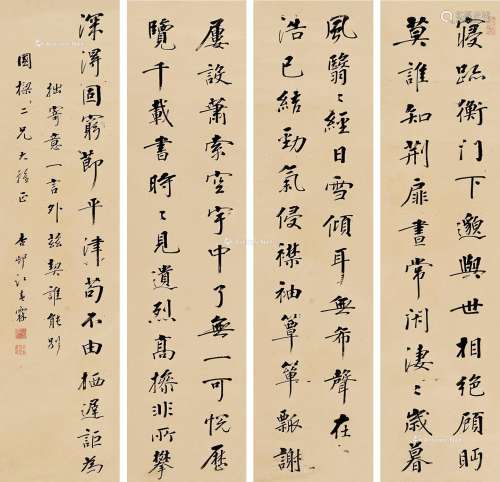 寢跡衡門下邈與世相絕顧眄
莫誰知荆扉晝常閉淒〻歲暮
風翳〻經日雪傾耳無希聲在
浩已結勁氣侵襟袖簟簞瓢謝
屢設蕭索空宇中了無一可悅歷
覽千載書時〻見遺烈高操非所攀
深得固窮節平津苟不由栖遲詎為
拙寄意一言外兹契誰能別
二兄大雅正 杏邨江春霖